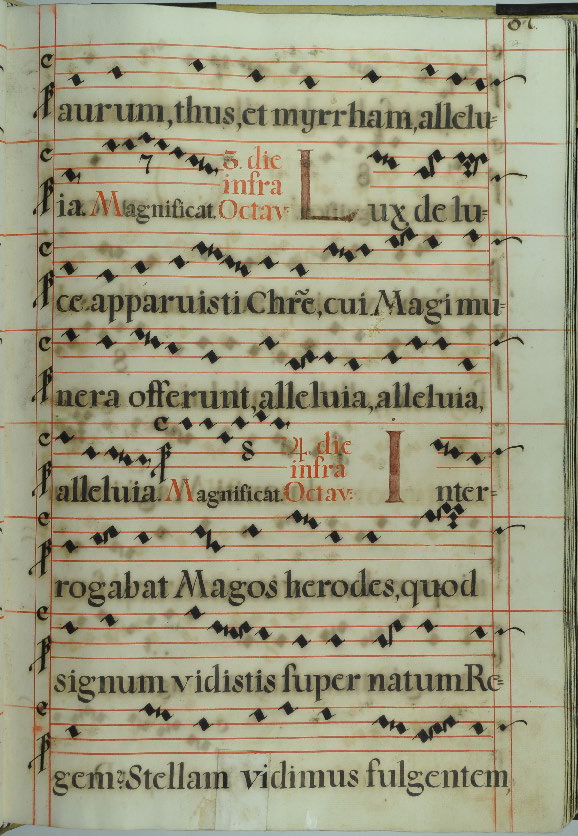 aurum, thus, et myrrham, allelu-
ia. Magnificat. 7 3. die infra Octav. Lux de lu-
ce apparuisti Chr̃e, cui Magi mu-
nera offerunt, alleluia, alleluia,
alleluia. Magnificat. 8 4. die infra Octav: Inter-
rogabat Magos herodes, quod
signum vidistis super natum Re-
gem? Stellam vidimus fulgentem,